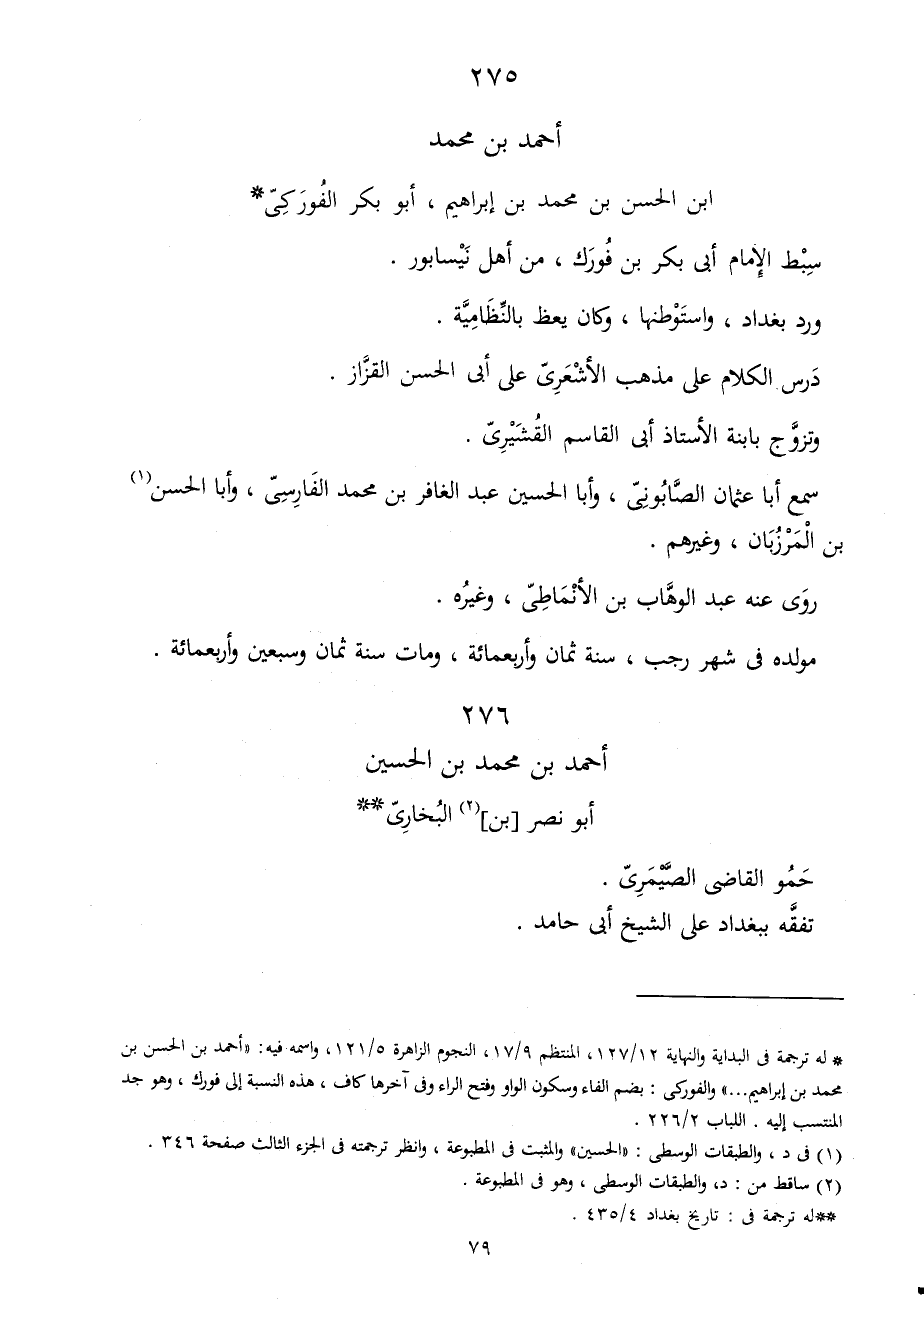 ٢٧٥
أحمد بن محمد
ابن الحسن بن محمد بن إبراهيم ، أبو بكر الفُورَكِىّ*
سِبْط الإمام أبى بكر بن فُورَك ، من أهل نَيْسابور .
ورد بغداد ، واستَوْطنها ، وكان يعظ بالنِّظَامِيَّة .
دَرس الكلام على مذهب الأشْعَرِىّ على أبى الحسن القزَّاز .
وتزوَّج بابنة الأستاذ أبى القاسم القُشَيْرِىّ .
سمع أبا عثمان الصَّابُونِىّ ، وأبا الحسين عبد الغافر بن محمد الفَارِسِىّ ، وأبا الحسن(١)
بن الْمَرْزُبَان ، وغيرهم .
روَى عنه عبد الوهَّاب بن الأنْمَاطِىّ ، وغيرُه .
مولده فى شهر رجب ، سنة ثمان وأربعمائة ، ومات سنة ثمان وسبعين وأربعمائة .
٢٧٦
أحمد بن محمد بن الحسين
أبو نصر [بن](٢) البُخارِىّ**
حَمُو القاضى الصَّيْمَرِىّ .
تفقَّه ببغداد على الشيخ أبى حامد .
* له ترجمة فى البداية والنهاية ١٢٧/١٢، المنتظم ١٧/٩، النجوم الزاهرة ١٢١/٥، واسمه فيه: «أحمد بن الحسن بن
محمد بن إبراهيم...» والفوركى : بضم الفاء وسكون الواو وفتح الراء وفى آخرها كاف ، هذه النسبة إلى فورك ، وهو جد
المنتسب إليه . اللباب ٢٢٦/٢ .
(١) فى د ، والطبقات الوسطى : «الحسين» والمثبت فى المطبوعة ، وانظر ترجمته فى الجزء الثالث صفحة ٣٤٦ .
(٢) ساقط من : د، والطبقات الوسطى ، وهو فى المطبوعة .
**له ترجمة فى : تاريخ بغداد ٤٣٥/٤ .
٧٩